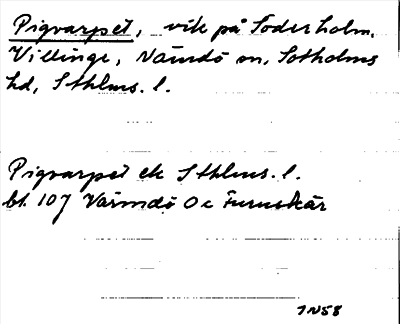 Pigvarpet, vik på Söderholm,
Villinge, Nämdö sn, Sotholms
hd, Sthlms. l.
Pigvarpet ek Sthlms. l.
bl. 107 Värmdö Oc Furuskär
IN58